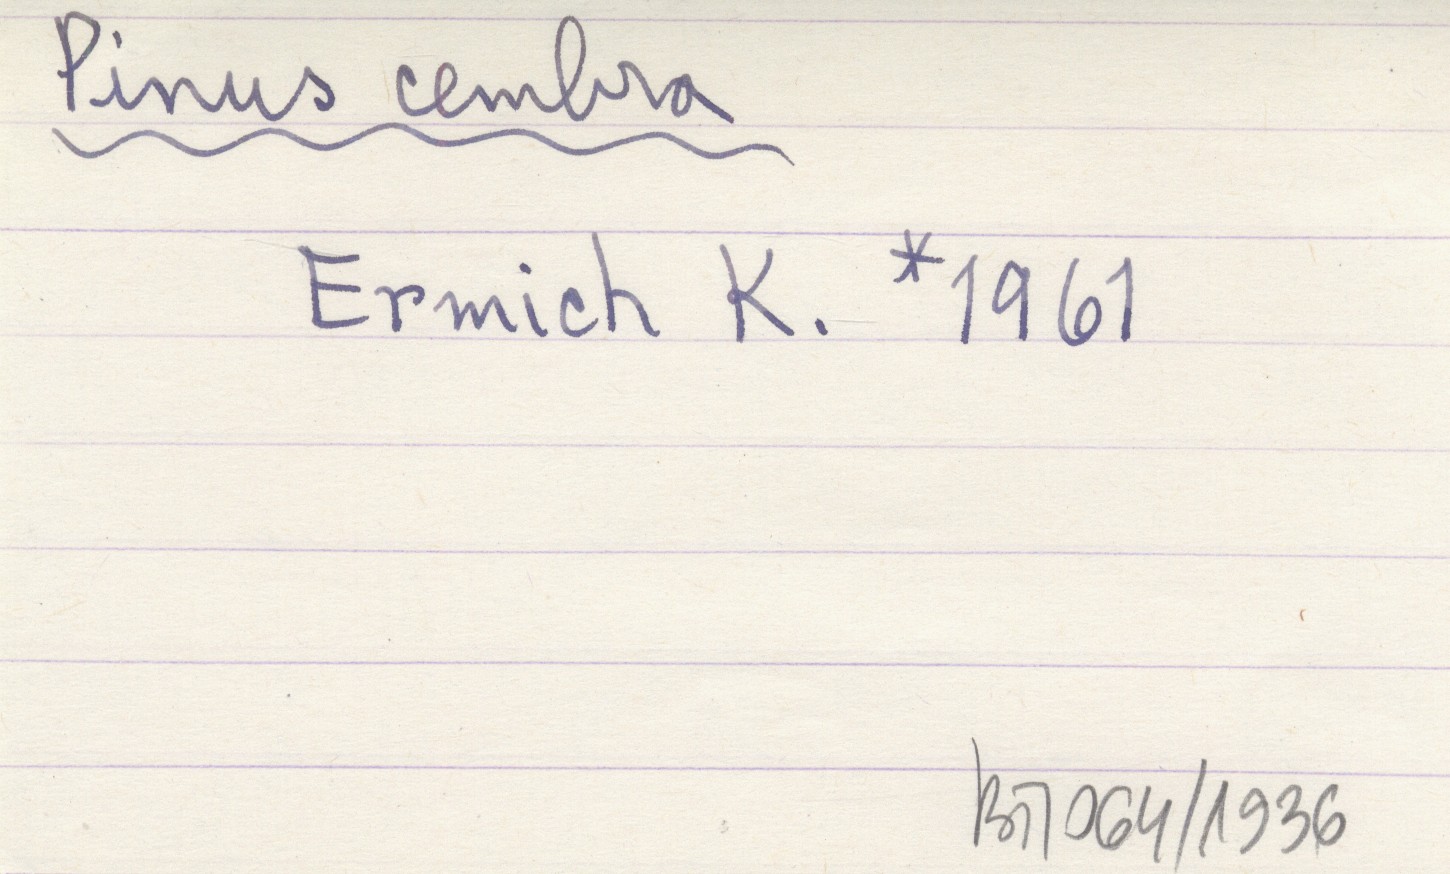 Pinus cembra
Ermich K. *1961
064/1936